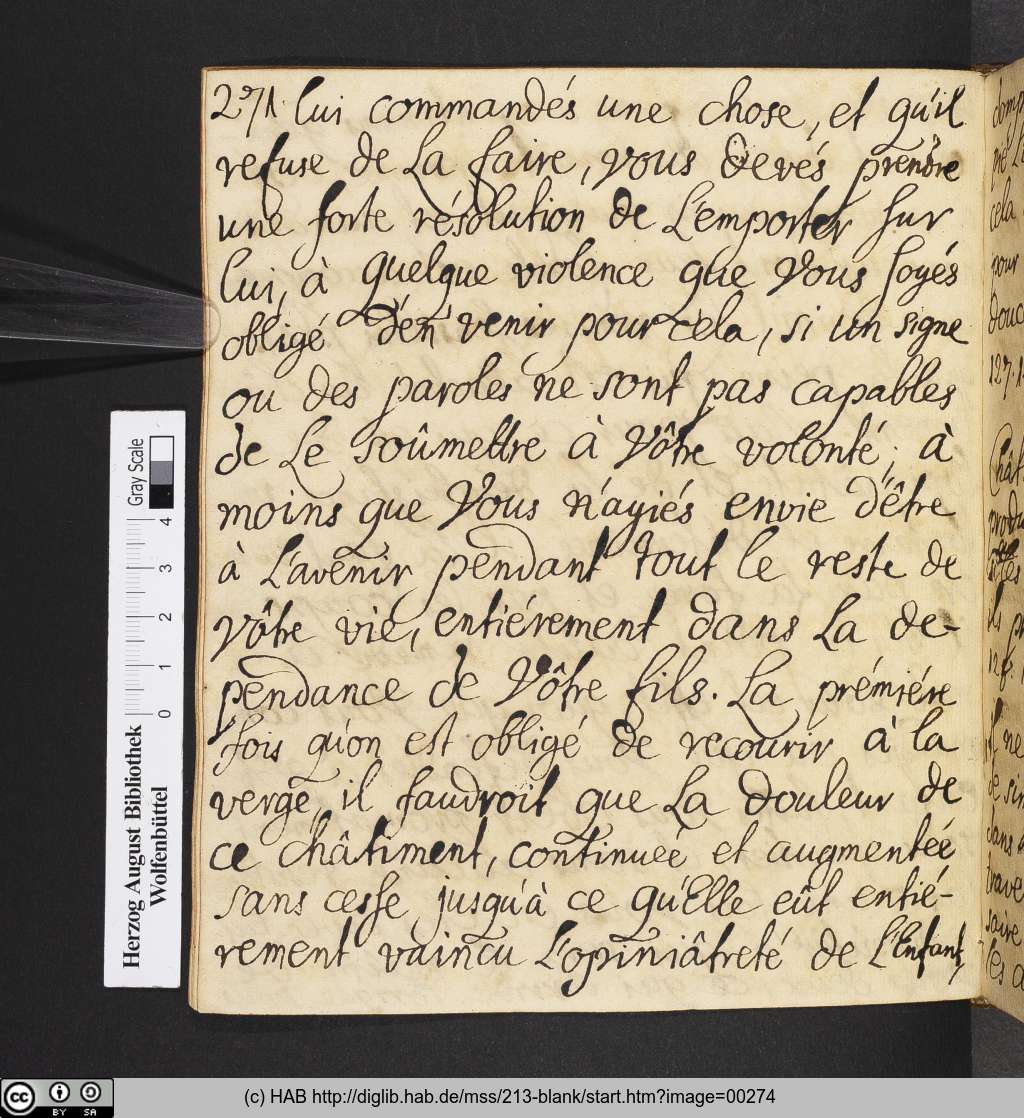 271. lui commandés une chose, et qu'il
refuse de La faire, vous devés prendre
une forte résolution de L'emporter sur
lui, à quelque violence que Vous soyés
obligé d'en venir pour cela, si un signe
ou des paroles ne sont pas capables
de Le soûmettre à Vôtre volonté; à
moins que Vous n'ayiés envie d'être
à L'avenir pendant tout le reste de
Vôtre vie, entiérement dans La de-
pendance de Vôtre fils. La prémiére
fois qu'on est obligé de recourir à la
verge, il faudroit que La douleur de
ce châtiment, continuée et augmentée
sans cesse jusqu'à ce qu'Elle eût entié-
rement vaincu L'opiniâtreté de L'Enfant,
cela
pour
Gray Scale
4
3
2
1
0
Herzog August Bibliothek
Wolfenbüttel
cc BY SA
(c) HAB http://diglib.hab.de/mss/213-blank/start.htm?image=00274